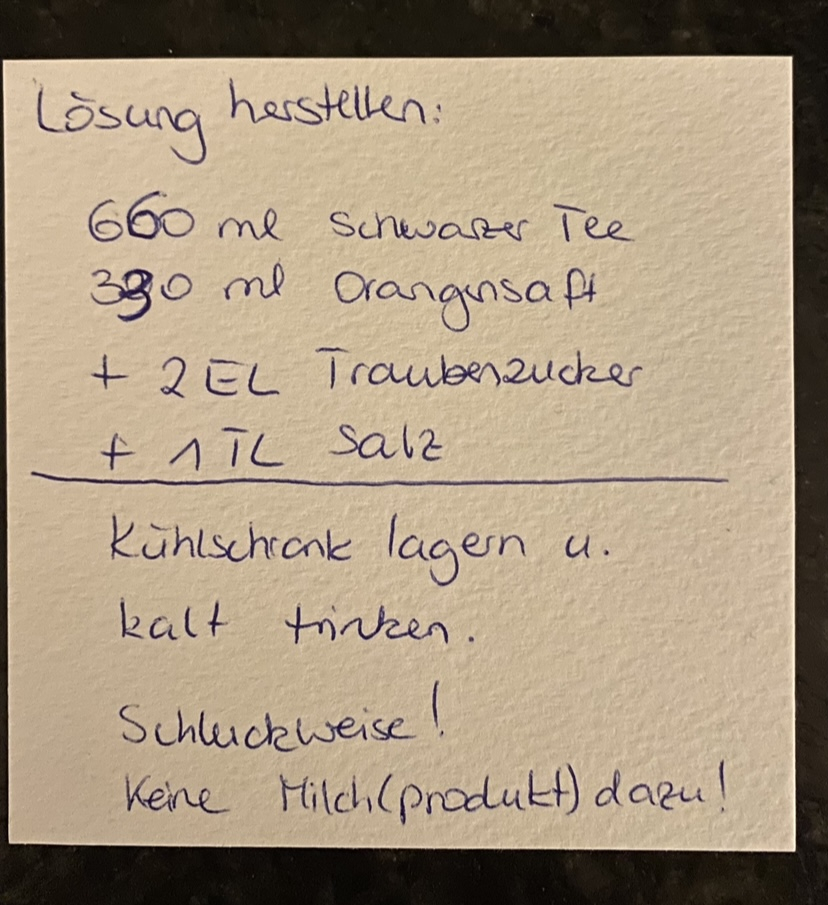 Lösung herstellen:
660 ml Schwarzer Tee
330 ml Orangensaft
+ 2 EL Traubenzucker
+ 1 TL Salz
Kühlschrank lagern u.
kalt trinken.
Schluckweise!
Keine Milch(produkt) dazu!